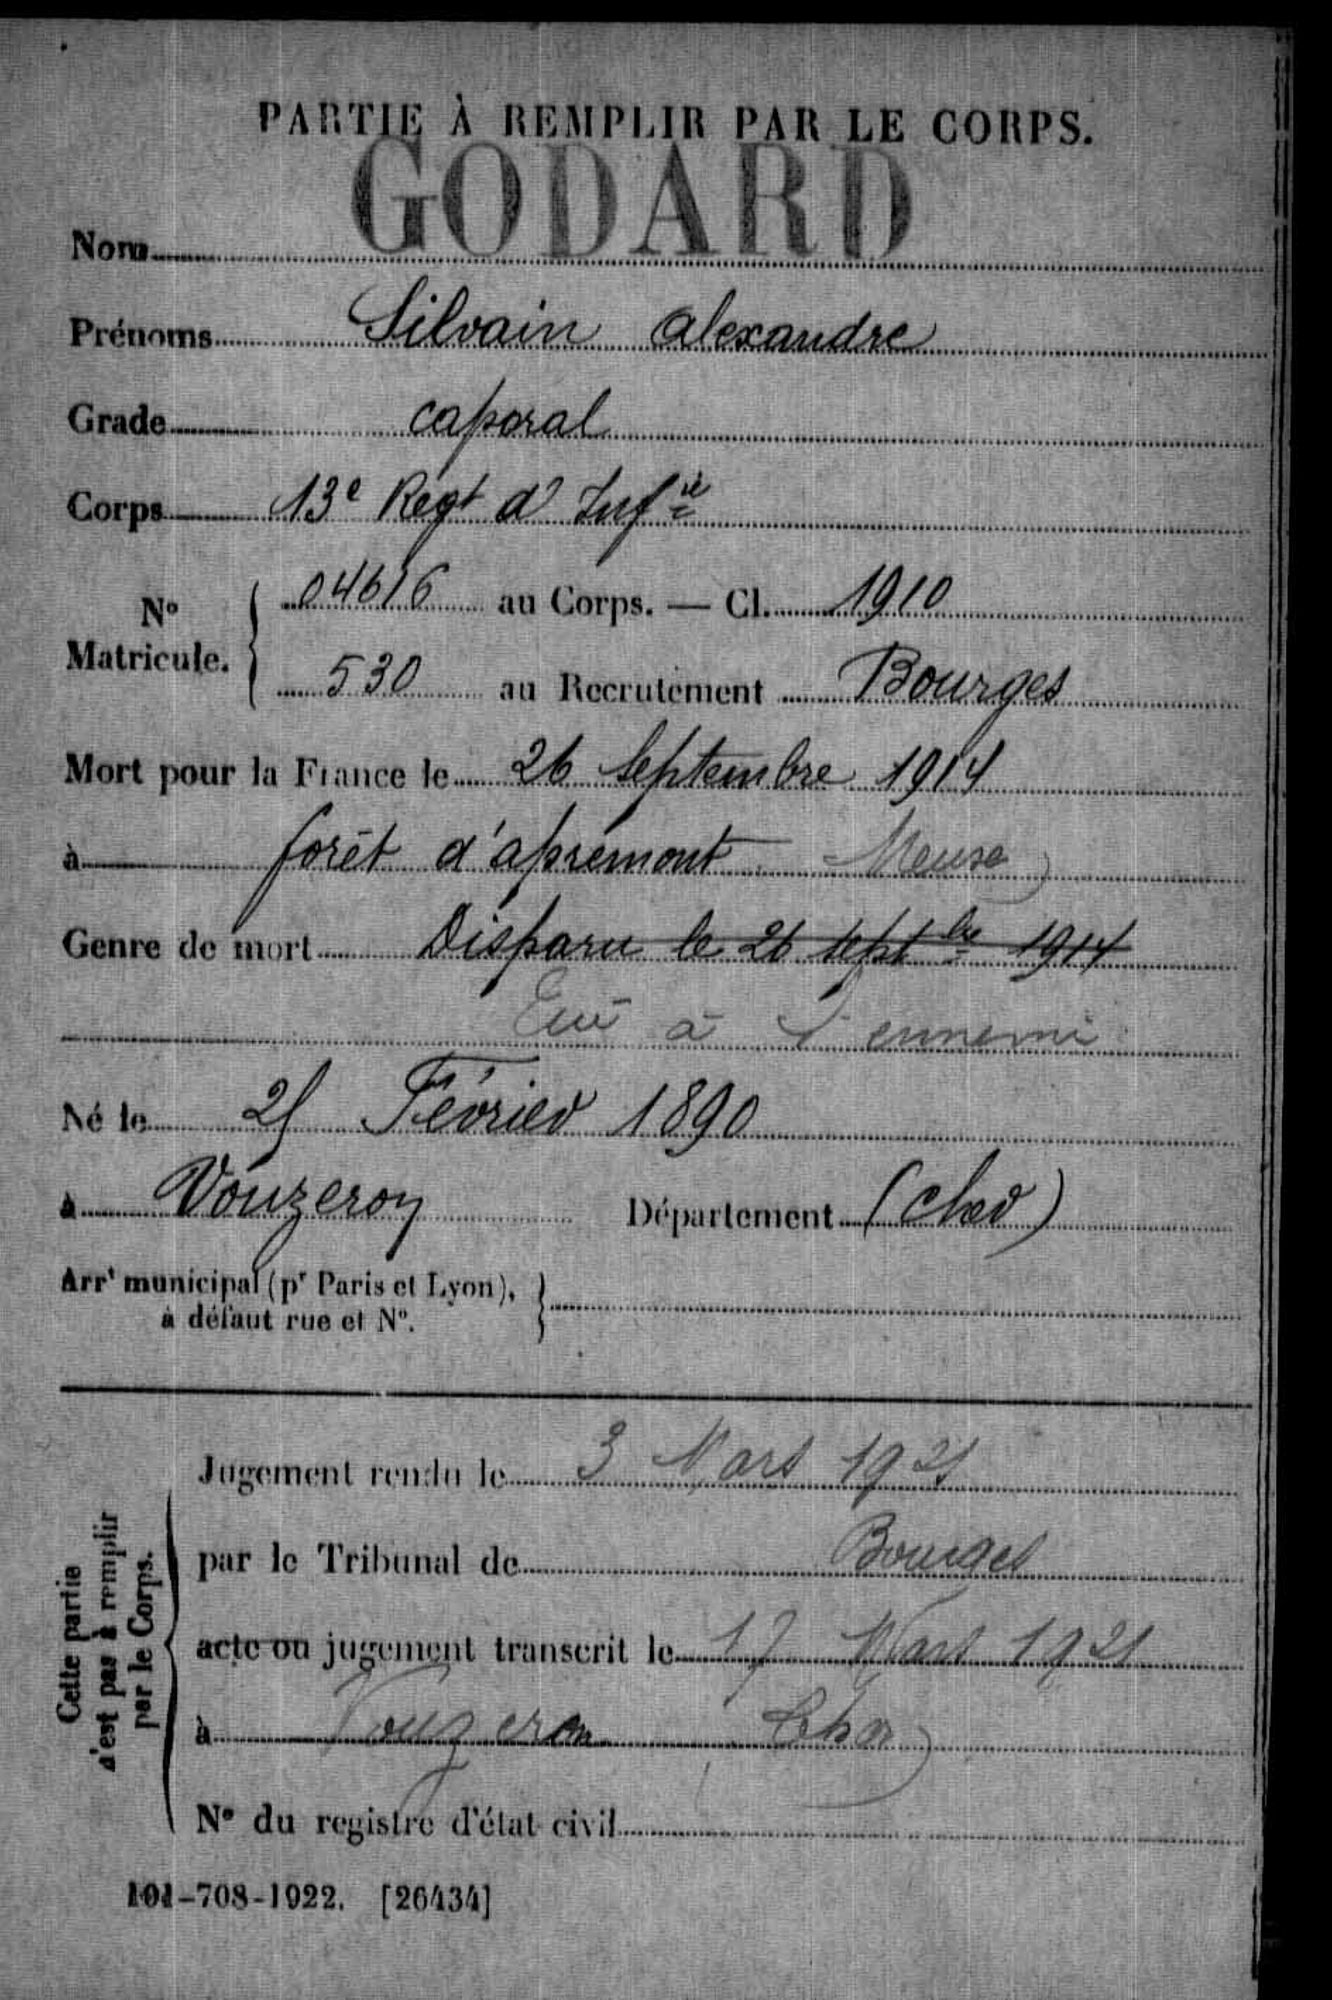 PARTIE À REMPLIR PAR LE CORPS.
GODARD
Nom
Prénoms Silvain Alexandre
Grade caporal
Corps 13e Regt d' Infie
No Matricule. 04616 au Corps. — Cl. 1910
530 au Recrutement Bourges
Mort pour la France le 26 Septembre 1914
à forêt d'apremont Meuse)
Genre de mort Disparu le 26 septbre 1914
Tué à l'ennemi
Né le Février 1890
à Vouzeron Département (Cher)
Arrt municipal (pr Paris et Lyon),
à défaut rue et No.
Cette partie n'est pas à remplir par le Corps.
Jugement rendu le 3 Mars 1921
par le Tribunal de Bourges
acte ou jugement transcrit le 17 Mars 1921
à Vouzeron Cher)
No du registre d'état civil
101-708-1922. [26434]